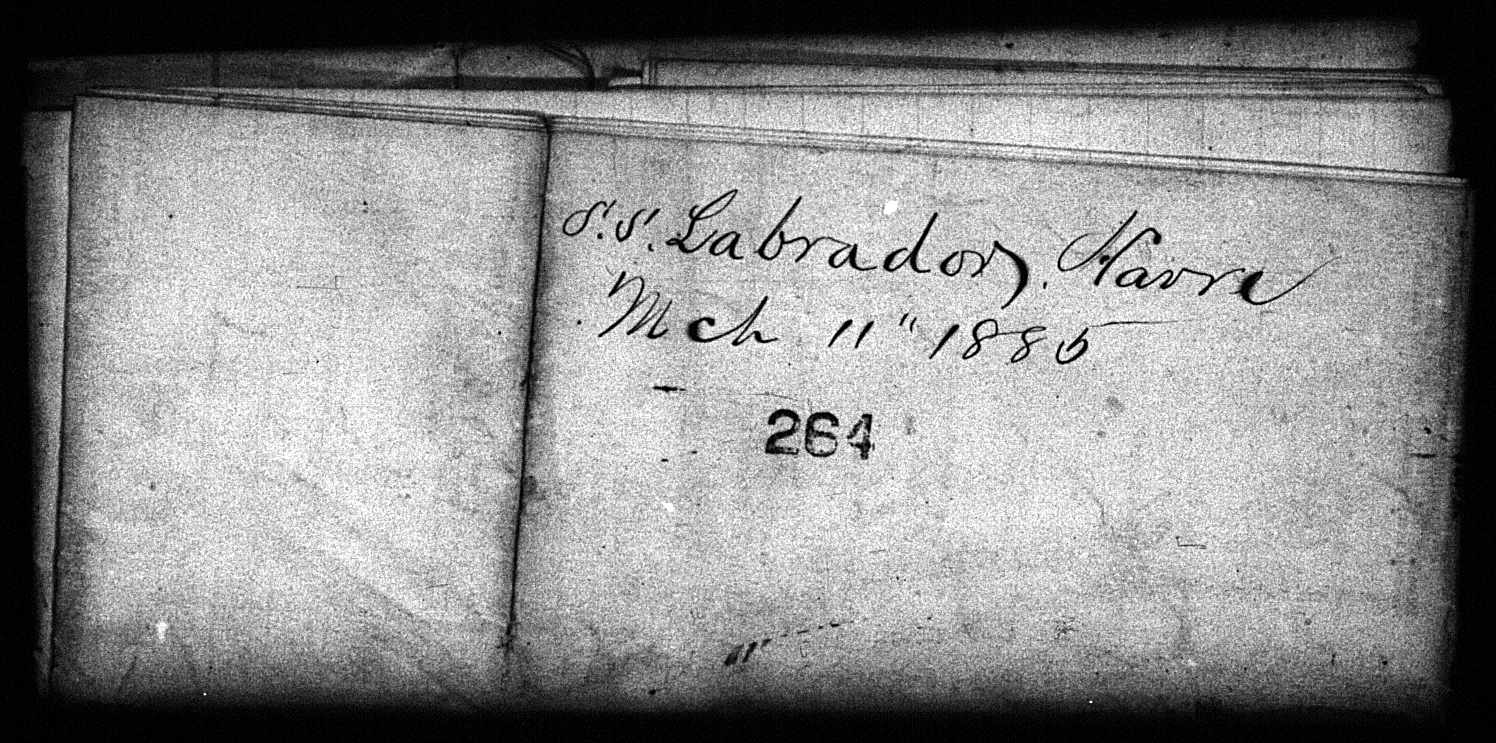 S.S. Labrador, Havre
Mch 11" 1885
264